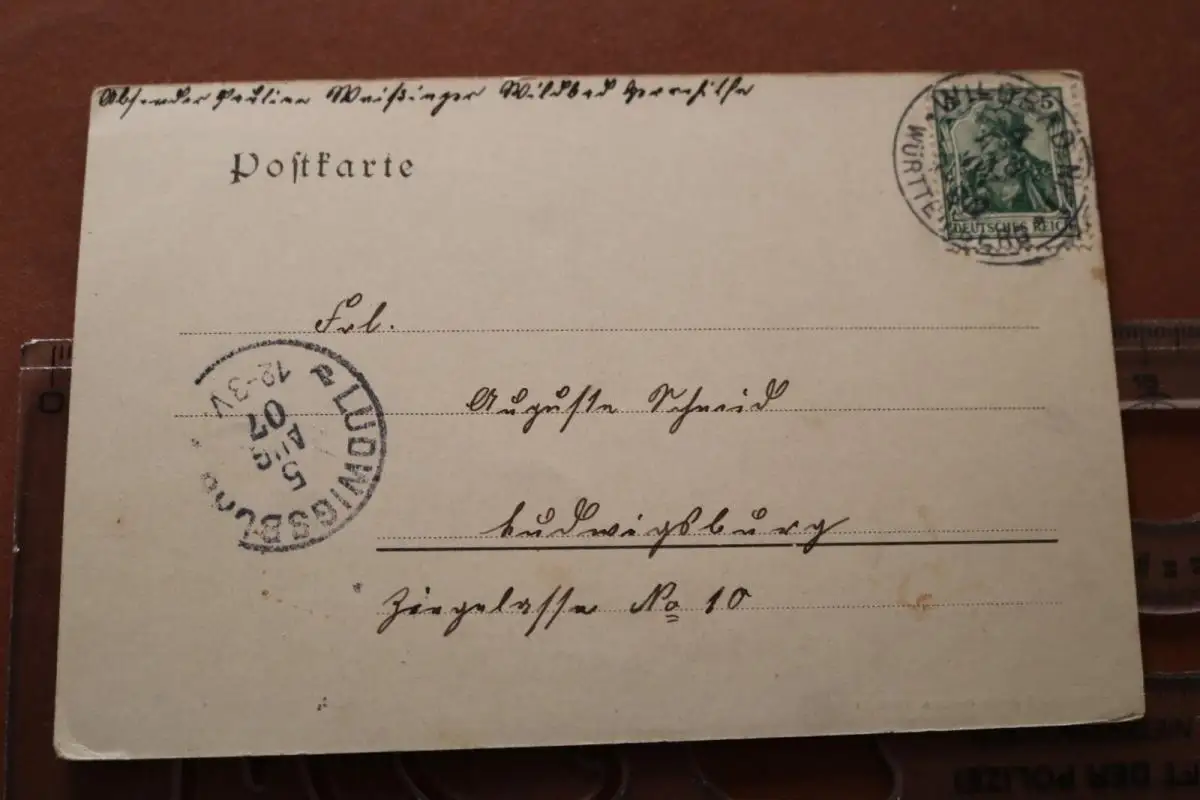 Absender Pauline Weißinger Wildbad
Postkarte
5
WILDBAD
WÜRTTEMBERG
DEUTSCHES REICH
Frl.
Auguste Schneid
Ludwigsburg
Ziegelasse No 10
LUDWIGSBURG
5
AUG
07
12-3V